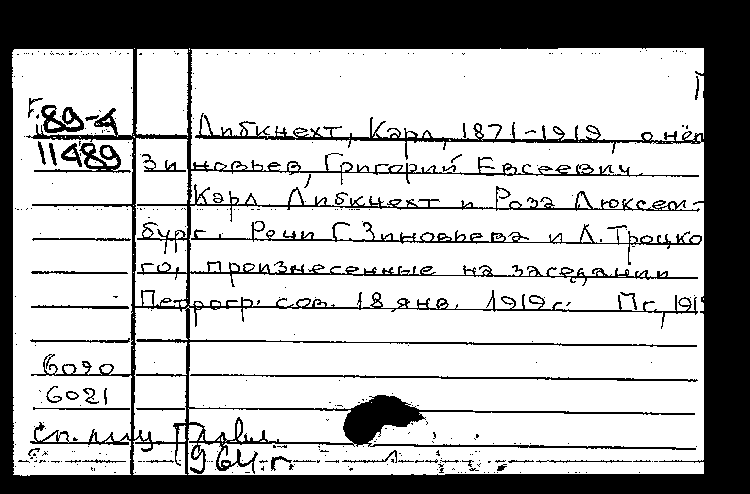 89-4 Либкнехт, Карл, 1871-1919, о нём
11489 Зиновьев, Григорий Евсеевич.
Карл Либкнехт и Роза Люксем-
бург. Речи Г. Зиновьева и Л. Троцко
го, произнесенные на заседании
Петрогр. сов. 18 янв. 1919 г. Пг, 1919
6090
6021
Сп. лиц. Главл.
964 г.